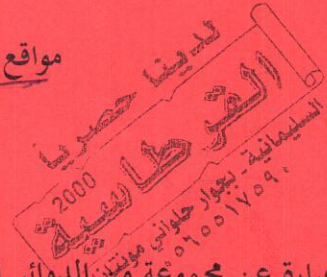 مواقع
لدينا حصريا
القرطاسية
2000
السليمانية - بجوار حلواني مونتير
٠٥٦٥٥١٧٥٩٠
عن مجموعة من